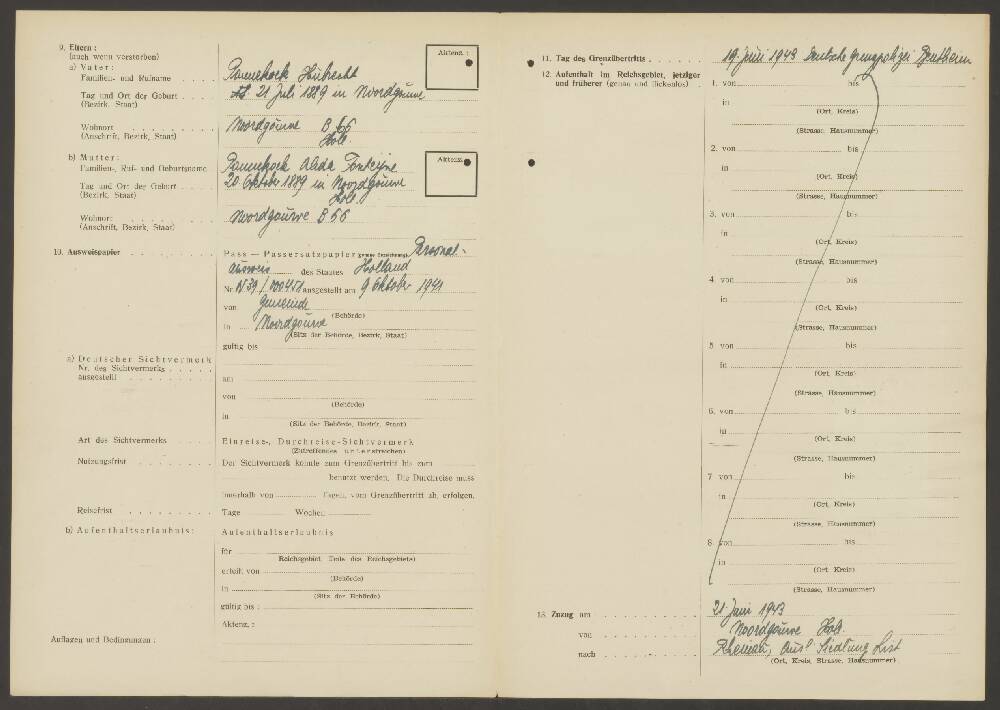 9. Eltern :
(auch wenn verstorben)
a) Vater :
Familien- und Rufname
Pannekoek Hubrecht
Aktenz. :
Tag und Ort der Geburt
(Bezirk, Staat)
21 Juli 1889 in Noordgouwe
Wohnort
(Anschrift, Bezirk, Staat)
Noordgouwe B 66
Holl.
b) Mutter :
Familien-, Ruf- und Geburtsname
Pannekoek Alida Fonteijne
Aktenz.
Tag und Ort der Geburt
(Bezirk, Staat)
20 Oktober 1889 in Noordgouwe
Holl.
Wohnort
(Anschrift, Bezirk, Staat)
Noordgouwe B 66
10. Ausweispapier
Pass — Passersatzpapier (genaue Bezeichnung) Personal-
ausweis des Staates Holland
Nr. N 39 / 000451 ausgestellt am 9 Oktober 1941
von Gemeinde
(Behörde)
in Noordgouwe
(Sitz der Behörde, Bezirk, Staat)
gültig bis
a) Deutscher Sichtvermerk
Nr. des Sichtvermerks
ausgestellt
am
von
(Behörde)
in
(Sitz der Behörde, Bezirk, Staat)
Art des Sichtvermerks
Einreise-, Durchreise-Sichtvermerk
(Zutreffendes unterstreichen)
Nutzungsfrist
Der Sichtvermerk konnte zum Grenzübertritt bis zum
benutzt werden. Die Durchreise muss
innerhalb von Tagen, vom Grenzübertritt ab, erfolgen.
Reisefrist
Tage Wochen
b) Aufenthaltserlaubnis:
Aufenthaltserlaubnis
für
Reichsgebiet, Teile des Reichsgebiets)
erteilt von
(Behörde)
in
(Sitz der Behörde)
gültig bis :
Aktenz. :
Auflagen und Bedingungen :
11. Tag des Grenzübertritts
19 Juni 1943 Deutsche Grenzpolizei Bentheim
12. Aufenthalt im Reichsgebiet, jetziger
und früherer (genau und lückenlos)
1. von bis
in
(Ort, Kreis)
(Strasse, Hausnummer)
2. von bis
in
(Ort, Kreis)
(Strasse, Hausnummer)
3. von bis
in
(Ort, Kreis)
(Strasse, Hausnummer)
4. von bis
in
(Ort, Kreis)
(Strasse, Hausnummer)
5. von bis
in
(Ort, Kreis)
(Strasse, Hausnummer)
6. von bis
in
(Ort, Kreis)
(Strasse, Hausnummer)
7. von bis
in
(Ort, Kreis)
(Strasse, Hausnummer)
8. von bis
in
(Ort, Kreis)
(Strasse, Hausnummer)
13. Zuzug am
21 Juni 1943
von
Noordgouwe Holl.
nach
Siedlung List
(Ort, Kreis, Strasse, Hausnummer)